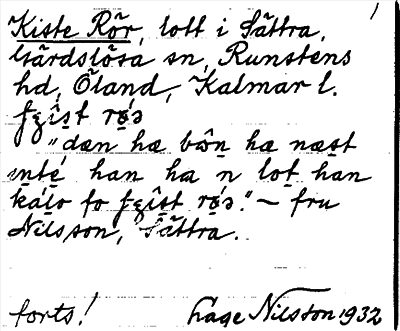 Kiste Rör, lott i Sättra,
Gärdslösa sn, Runstens
hd, Öland, Kalmar l.
"dæn hæ bôn hæ næst
inté han ha n lot han
kálo fo
Nilsson, Sättra.
forts! Lage Nilsson 1932